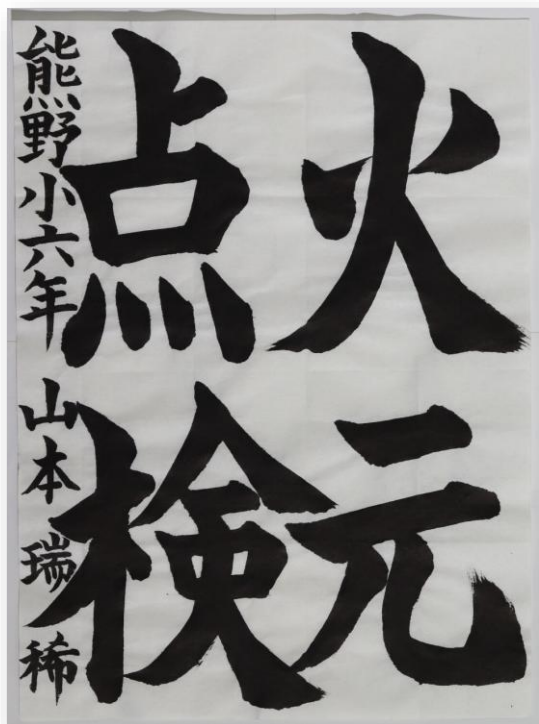 火元
点検
熊野小六年 山本瑞稀